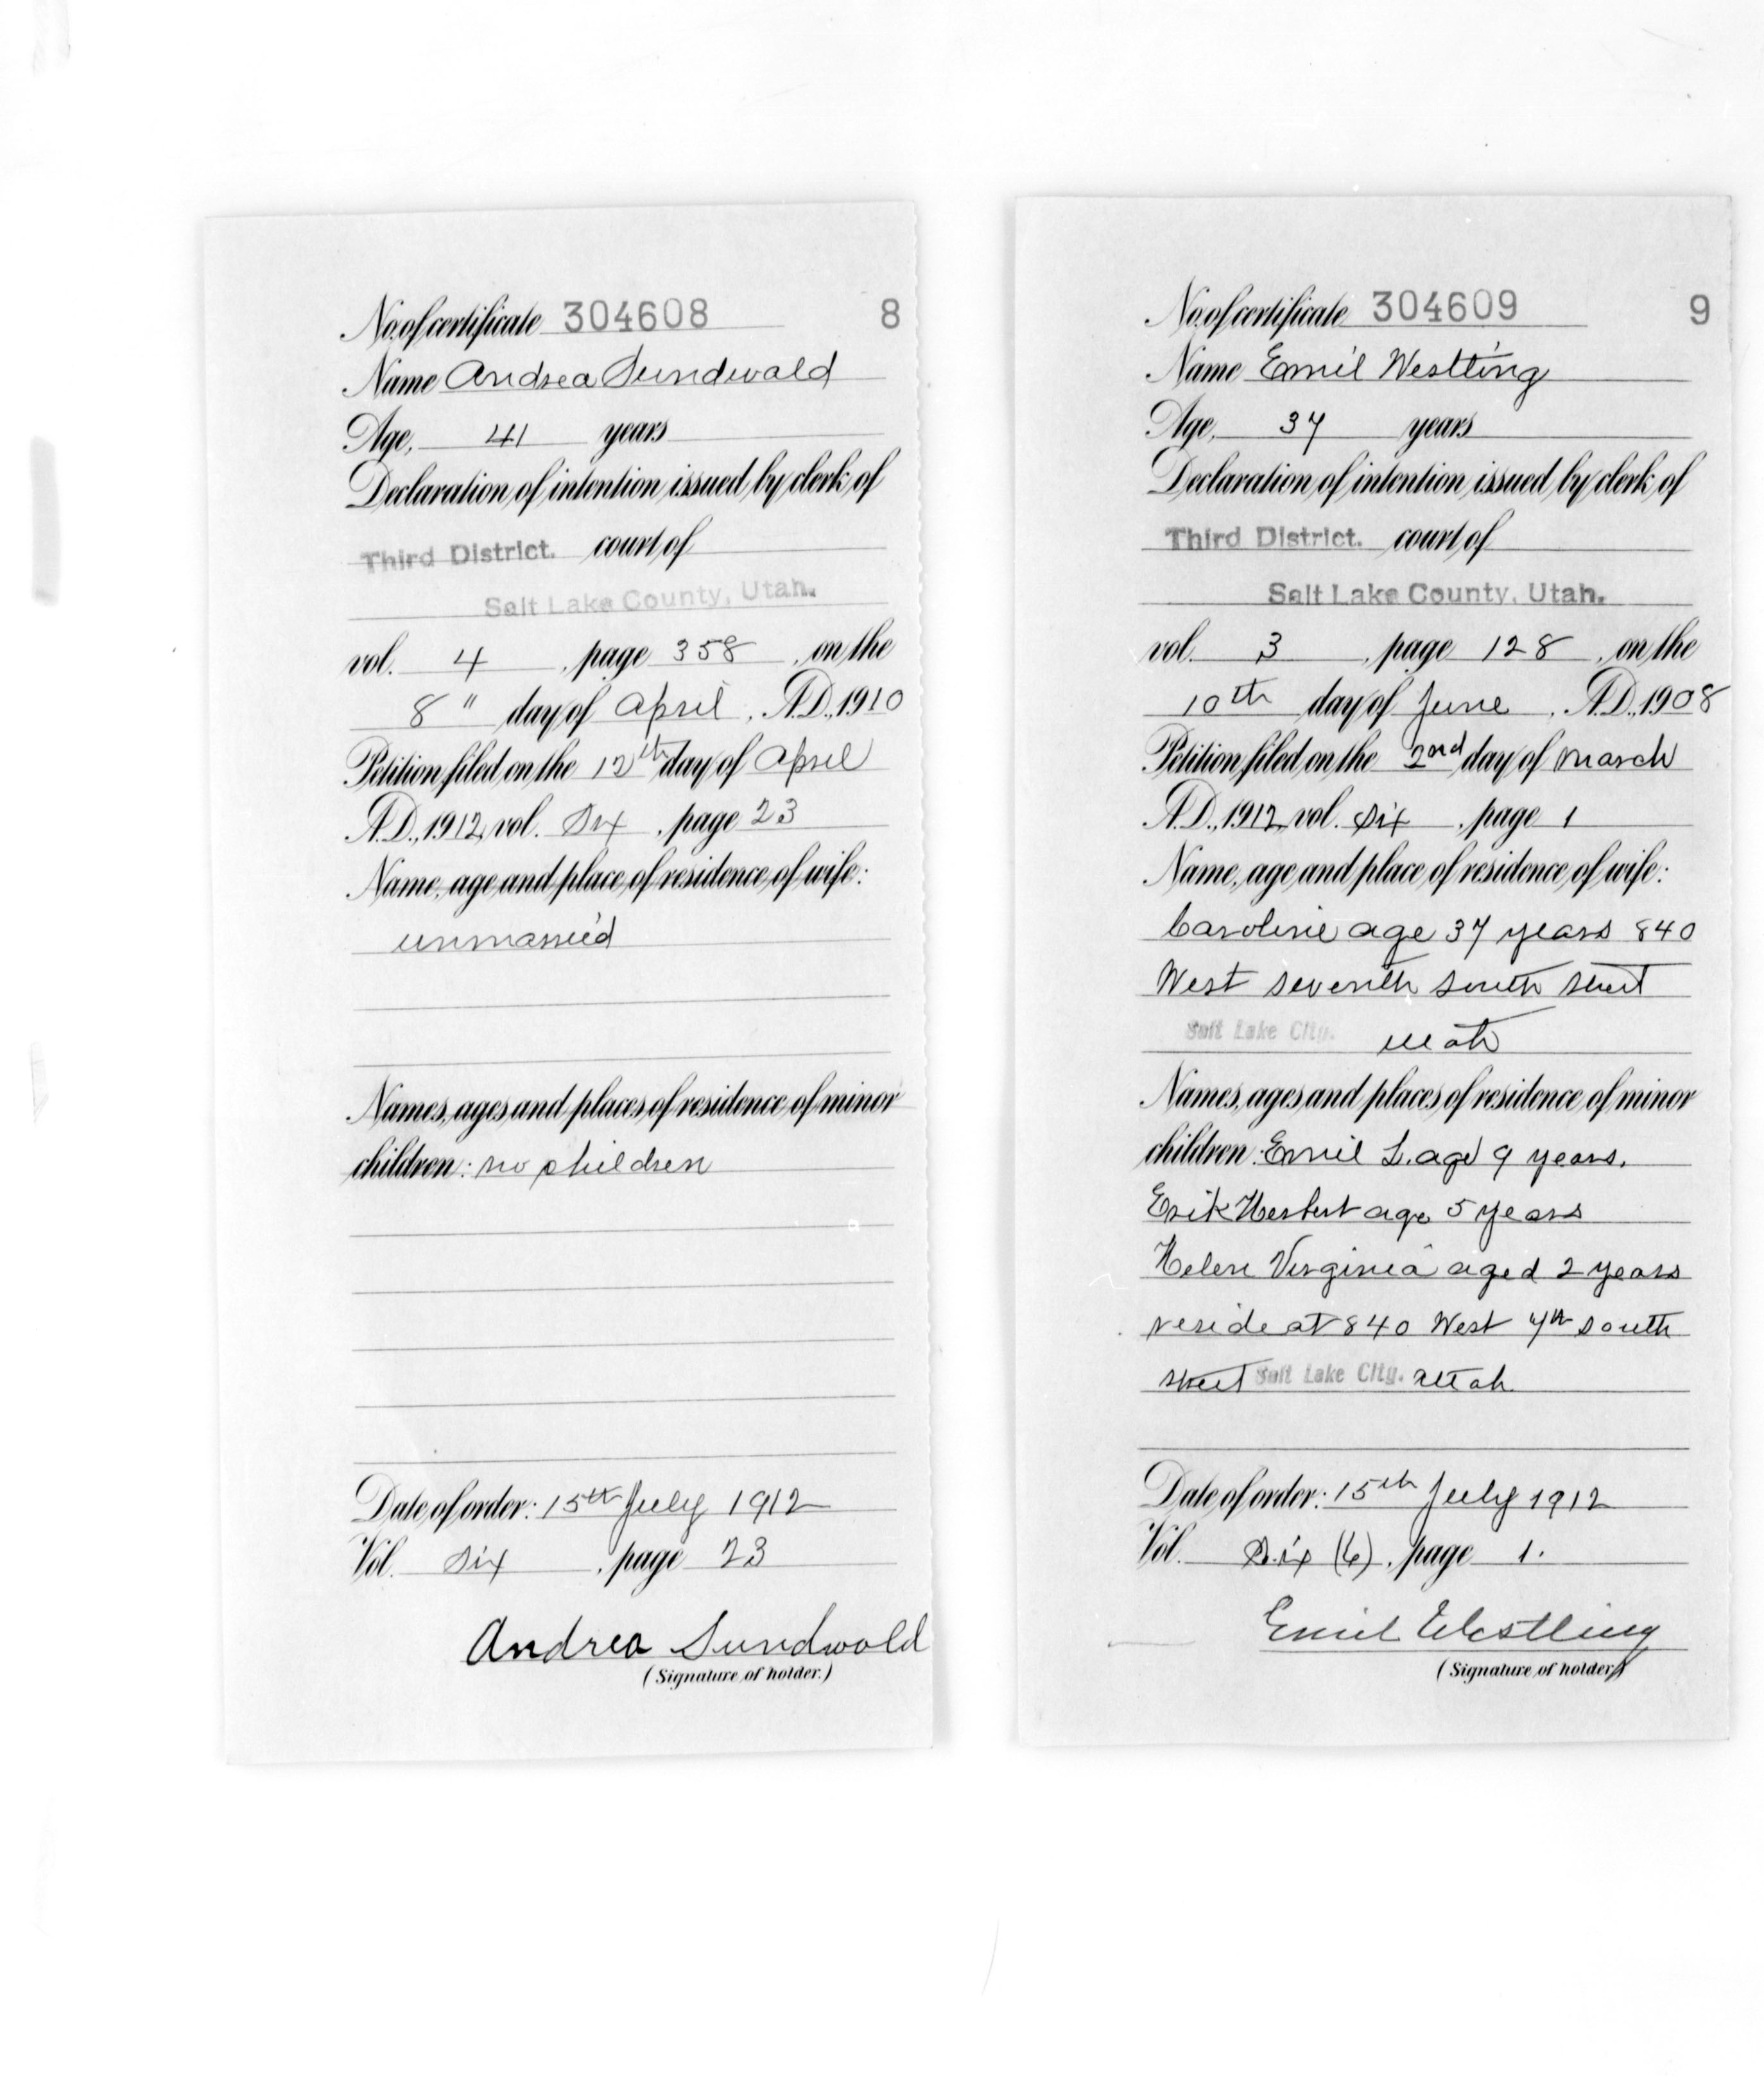 No. of certificate 304608 8
Name Andrea Sundwald
Age, 41 years
Declaration of intention issued by clerk of
Third District. court of
Salt Lake County, Utah.
vol. 4, page 358, on the
8 " day of April, A.D., 1910
Petition filed on the 12th day of April
A.D., 1912, vol. Six, page 23
Name, age and place of residence of wife:
unmarried
Names, ages and places of residence of minor
children: no children
Date of order: 15th July 1912
Vol. Six, page 23
Andrea Sundwald
(Signature of holder.)
No. of certificate 304609 9
Name Emil Westling
Age, 37 years
Declaration of intention issued by clerk of
Third District. court of
Salt Lake County, Utah.
vol. 3, page 128, on the
10th day of June, A.D., 1908
Petition filed on the 2nd day of March
A.D., 1912, vol. Six, page 1
Name, age and place of residence of wife:
Caroline age 37 years 840
West seventh south street
Salt Lake City. utah
Names, ages and places of residence of minor
children: Emil L. age 9 years.
Erik Herbert age 5 years
Helen Virginia aged 2 years
reside at 840 West 7th south
street Salt Lake City. utah
Date of order: 15th July 1912
Vol. Six (6), page 1.
Emil Westling
(Signature of holder.)